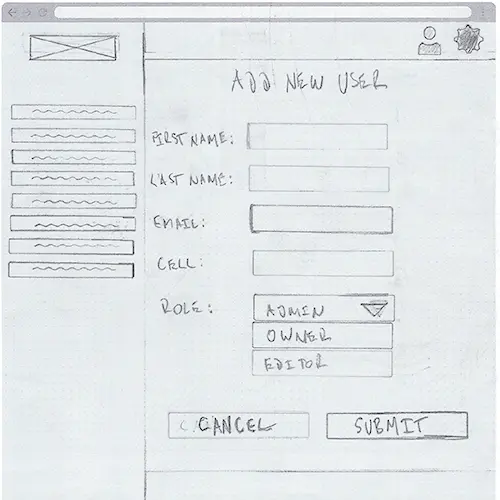 ADD NEW USER
FIRST NAME:
LAST NAME:
EMAIL:
CELL:
ROLE: ADMIN
OWNER
EDITOR
CANCEL SUBMIT